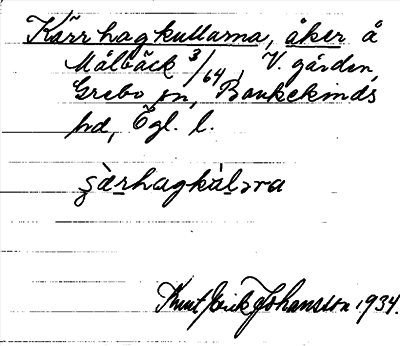 Kärrhagkullarna, åker å
Målbäck 3/64, V. gården,
Grebo sn, Bankekinds
hd, Ögl. l.
ʂæ̀rhagkúl̠ɔra
Knut Erik Johansson 1934.